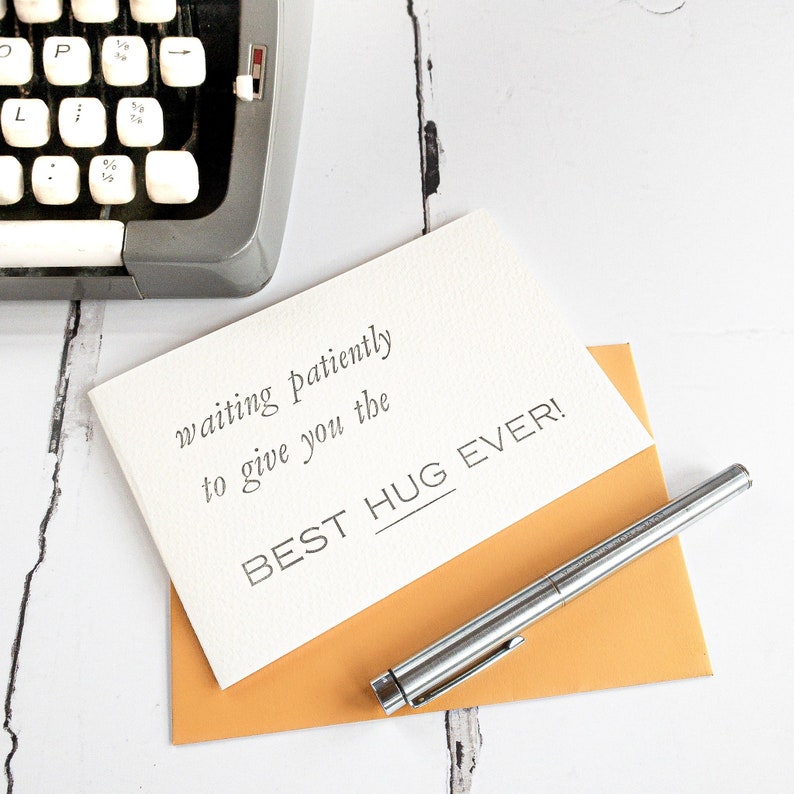 O P ⅛ ⅜ →
L ; ⅝ ⅞
: % ½
waiting patiently
to give you the
BEST HUG EVER!